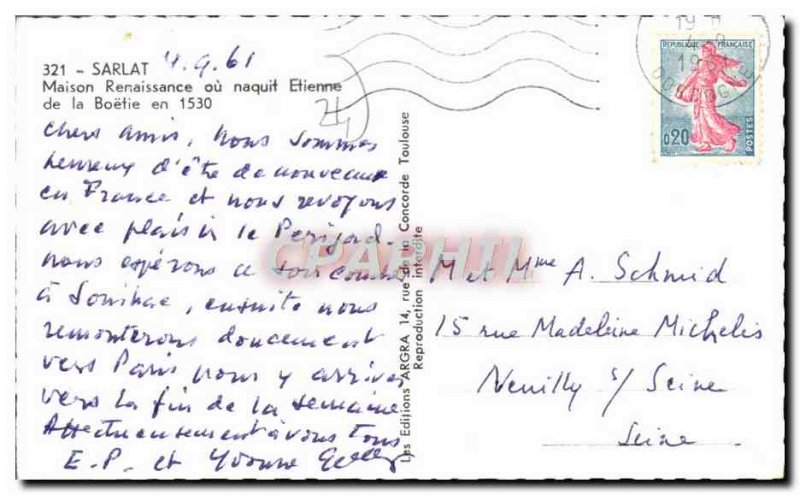 321 - SARLAT 4.9.61
Maison Renaissance où naquit Etienne
de la Boëtie en 1530
24
Chers amis, nous sommes
heureux d'être de nouveau
en France et nous revoyons
avec plaisir le Perigord.
nous espérons ce soir
à Souillac, ensuite nous
remonterons doucement
vers Paris pour y arriver
vers la fin de la semaine
Affectueusement à vous tous
E.P. et Yvonne
Les Editions ARGRA 14, rue de la Concorde Toulouse
Reproduction interdite
REPUBLIQUE FRANÇAISE
0,20
POSTES
DORDOGNE
CPAPHIL
M et Mme A. Schmid
15 rue Madeleine Michelis
Neuilly s/ Seine
Seine